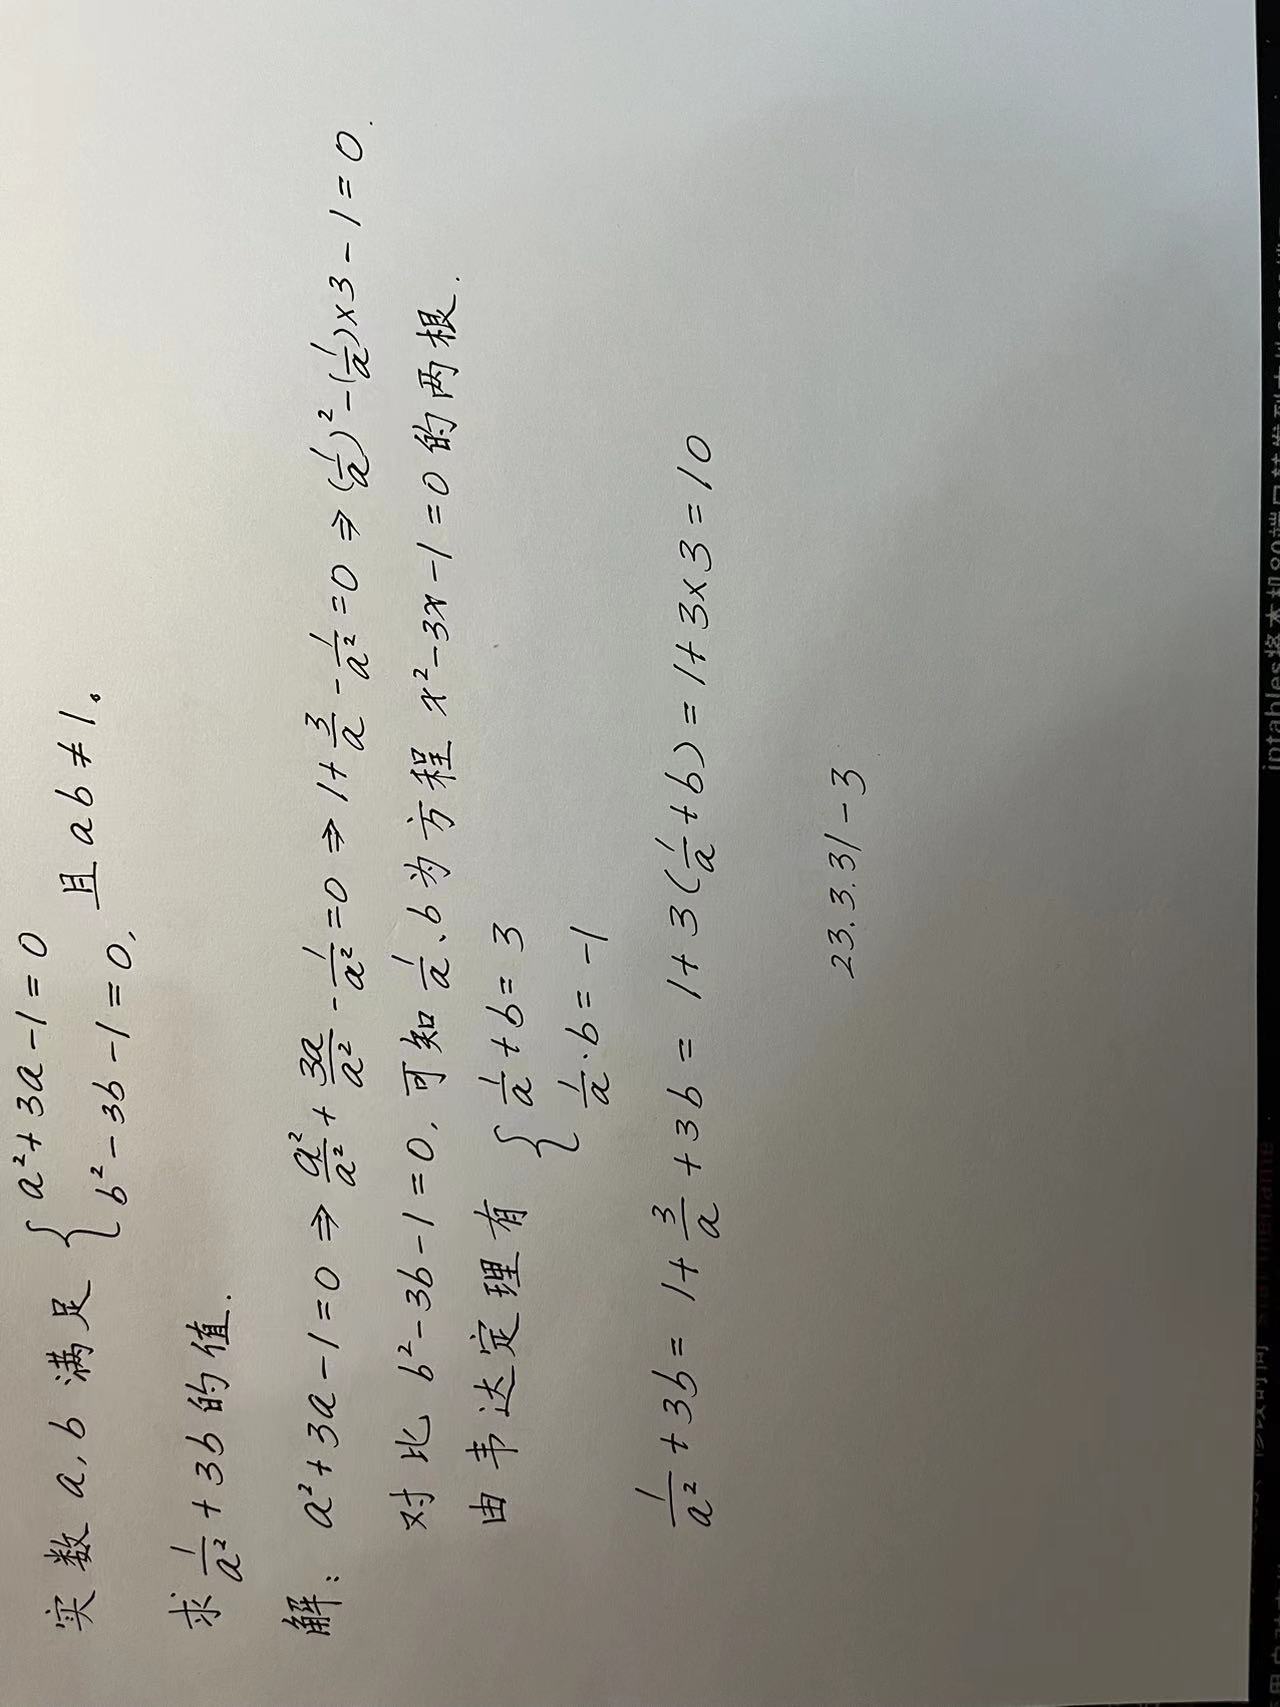 实数 a,b 满足 { a²+3a-1=0
b²-3b-1=0, 且 ab≠1。
求 1/a² + 3b 的值.
解: a²+3a-1=0 ⇒ a²/a² + 3a/a² - 1/a² = 0 ⇒ 1 + 3/a - 1/a² = 0 ⇒ (1/a)² - (1/a)×3 - 1 = 0.
对比 b²-3b-1=0, 可知 1/a、b 为方程 x²-3x-1=0 的两根.
由韦达定理有 { 1/a + b = 3
1/a · b = -1
1/a² + 3b = 1 + 3/a + 3b = 1 + 3(1/a + b) = 1+3×3 = 10
23.3.31-3